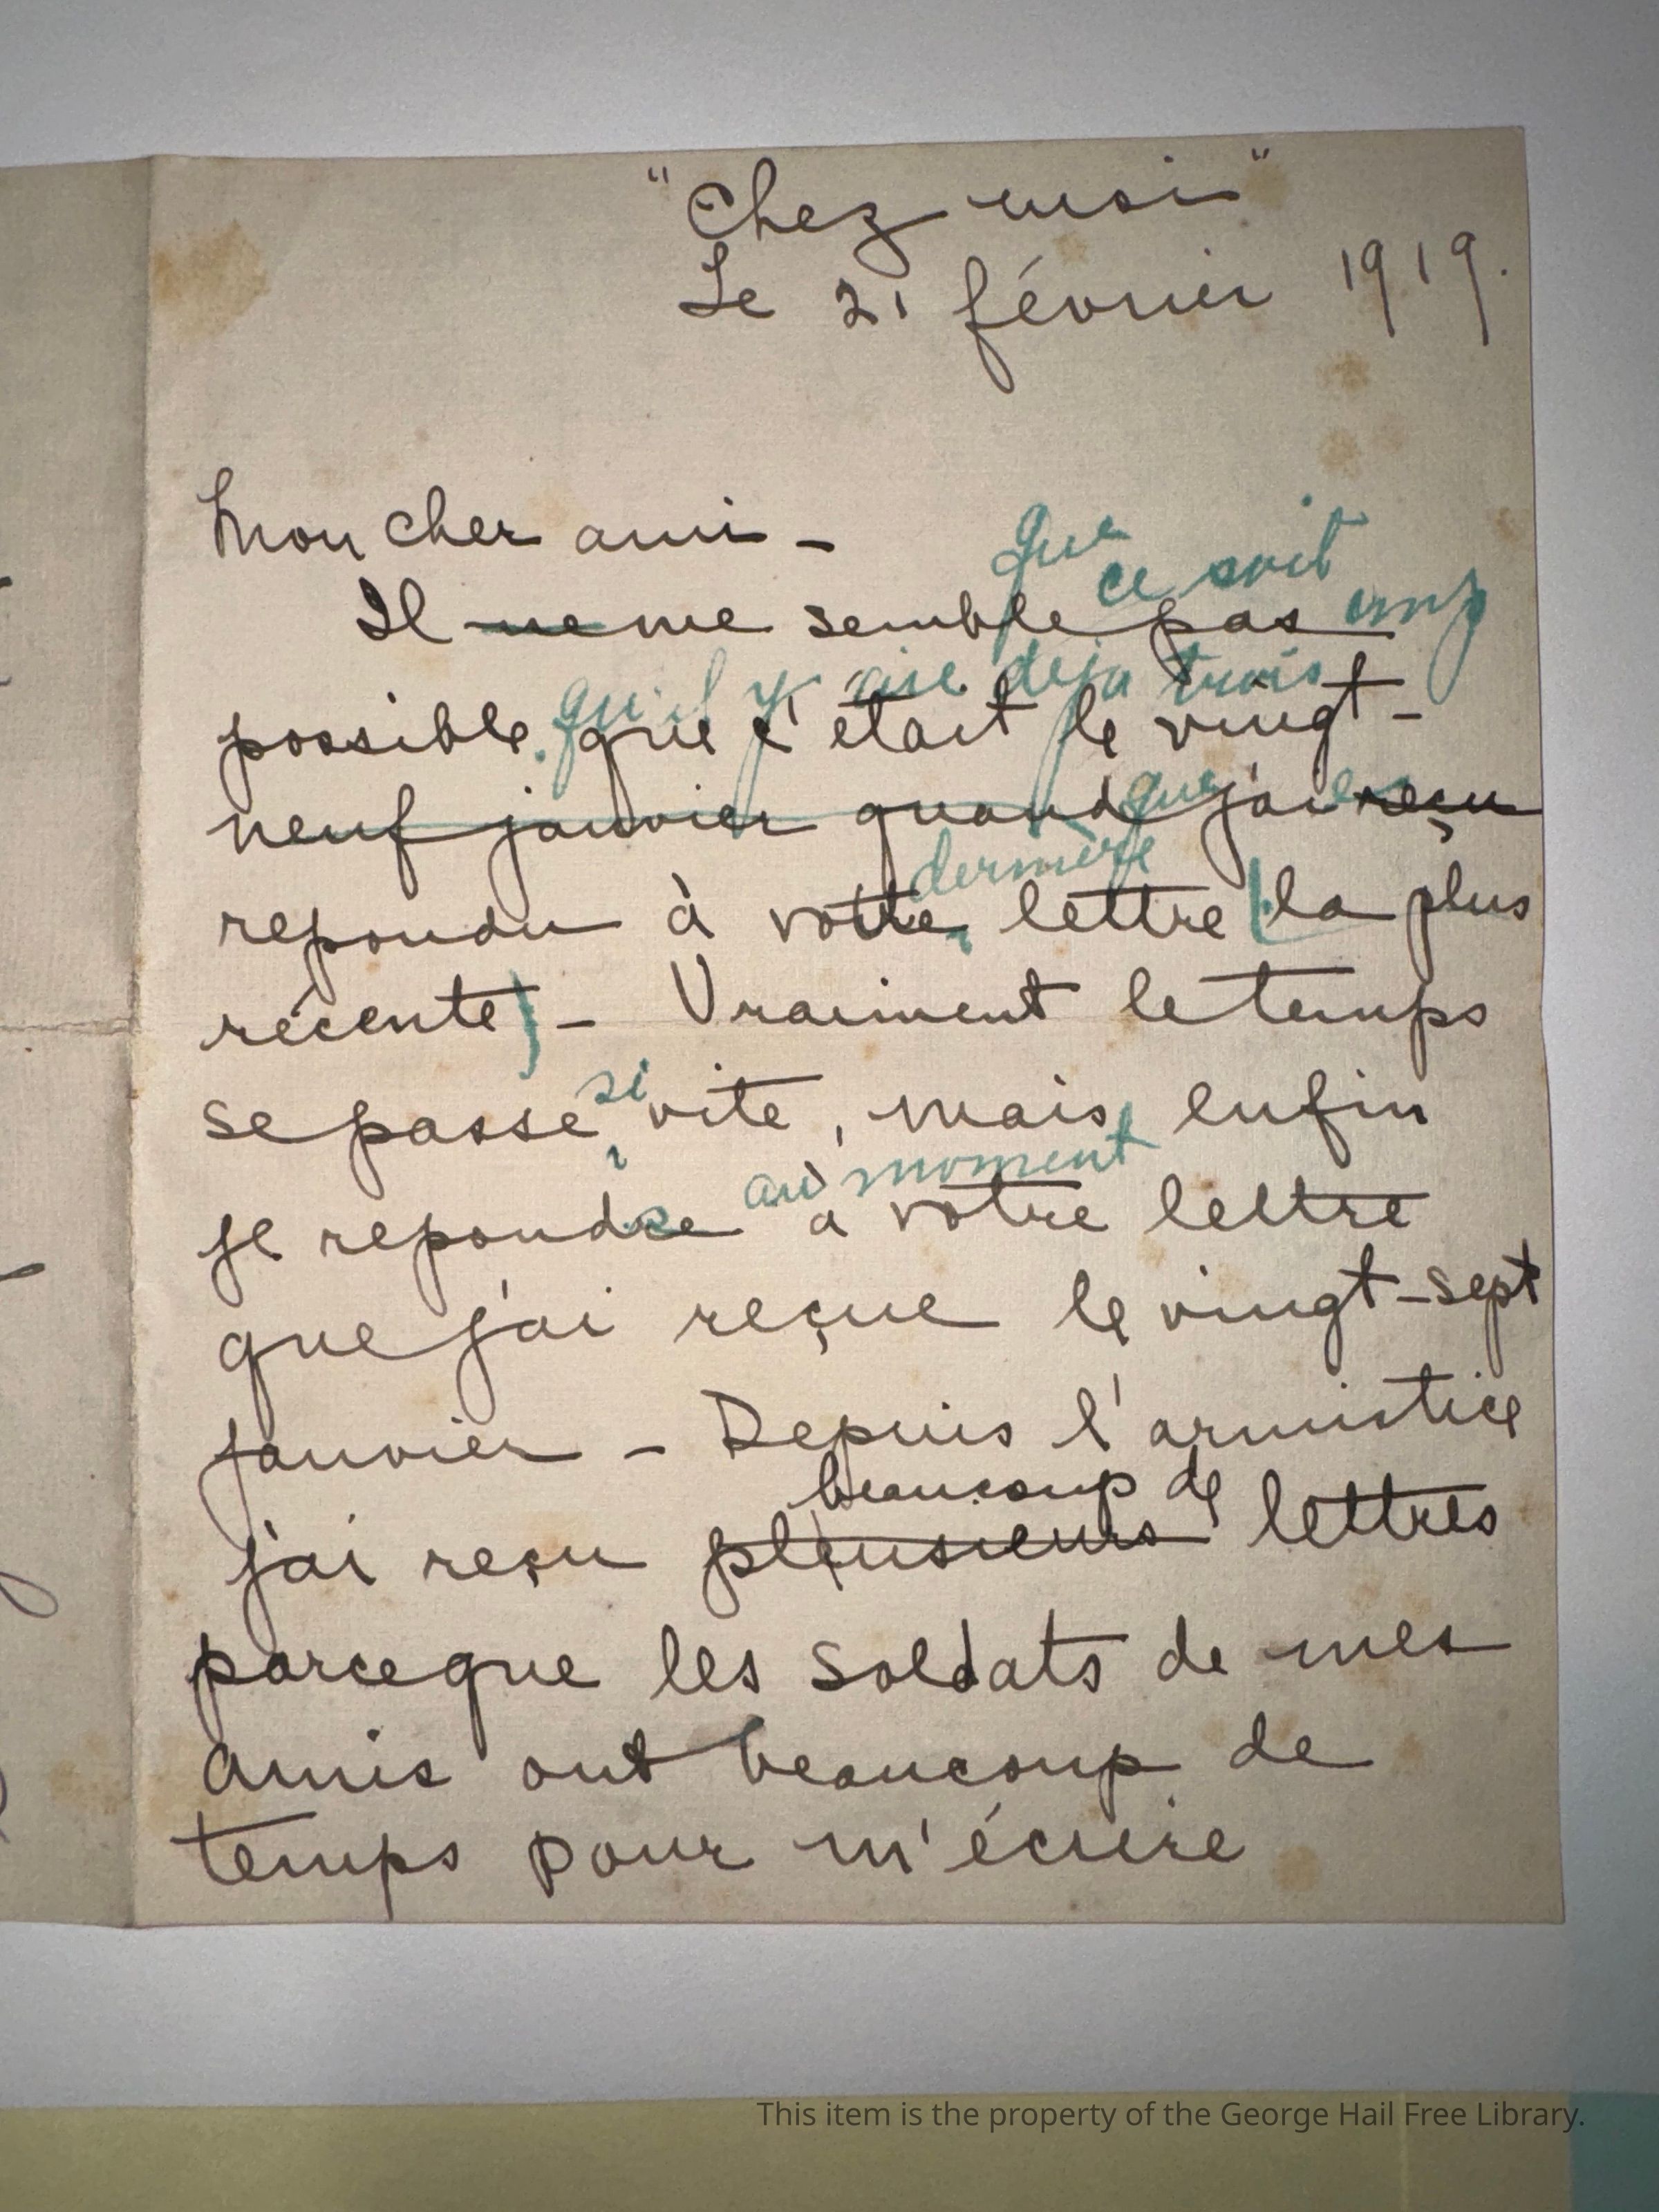 "Chez moi"
Le 21 février 1919.
Mon cher ami -
que
ce soit
Il ne me semble pas
qu'il y aie deja trois
possible que c'était le vingt-
que
neuf janvier quand j'ai reçu
dernière
repondu à votre lettre (la plus
récente) - Vraiment le temps
si
se passe vite, mais enfin
au moment
je repondre à votre lettre
que j'ai reçue le vingt-sept
janvier - Depuis l'armistice
beaucoup de
j'ai reçu plusieurs lettres
parceque les soldats de mes
amis ont beaucoup de
temps pour m'écrire
This item is the property of the George Hail Free Library.